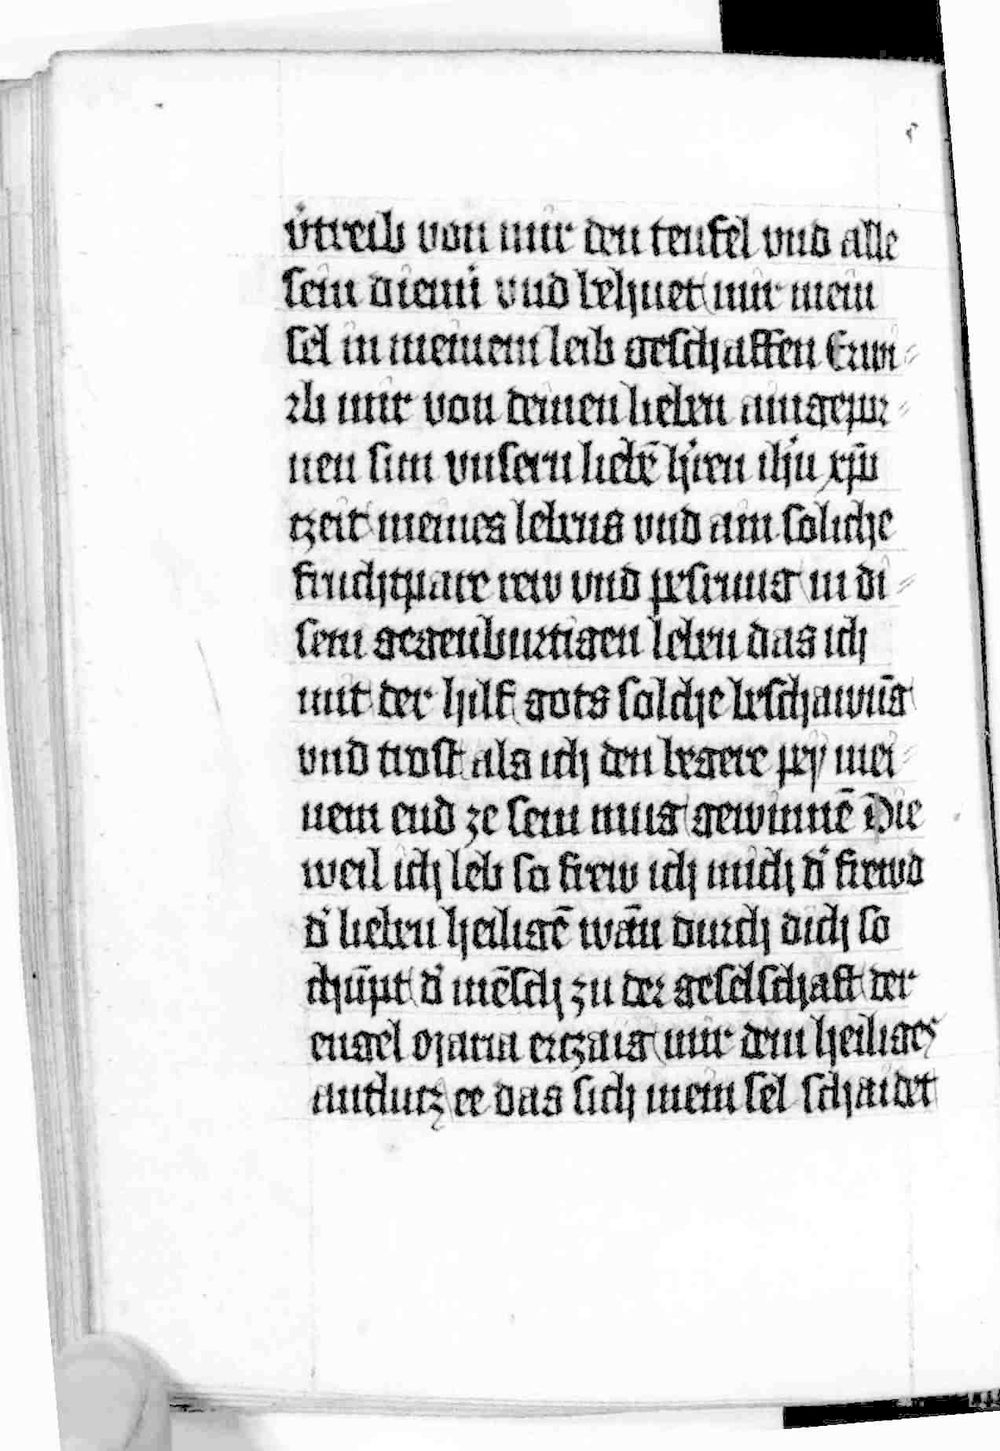 v̾treib von mir den teufel vnd alle
sein dienn̾ vnd behuet mir mein
sel in meinem leib geschaffen Erwi⸗
rb mir von deinen lieben aingepor⸗
nen sun vnsern liebē h̾ren ih̾u xp̄ū
tzeit meines lebens vnd ain soliche
fruchtpare rew vnd pesrung in di⸗
sem gegenburtigen leben das ich
mit der hilf gots solche beschawūg
vnd trost als ich den begere pey mei⸗
nem end ze sein mug gewinnē Die
weil ich leb so frew ich mich d̾ frewd
d̾ lieben heiligē wān durch dich so
chūpt d̾ mēsch zu der geselschaft der
engel Maria ertzaig mir dem heiliges
antlutz ee das sich mein sel schaidet